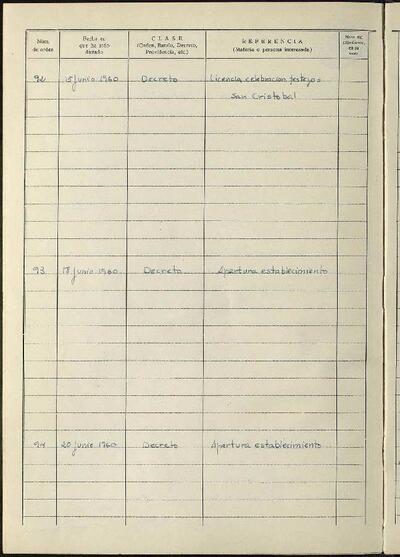 Núm. de orden
Fecha en que ha sido dictado
CLASE
(Orden, Bando, Decreto, Providencia, etc.)
REFERENCIA
(Materia o persona interesada)
92 15 junio 1960 Decreto Licencia celebración festejos
San Cristobal
93 18 junio 1960 Decreto Apertura establecimiento
94 20 junio 1960 Decreto Apertura establecimiento